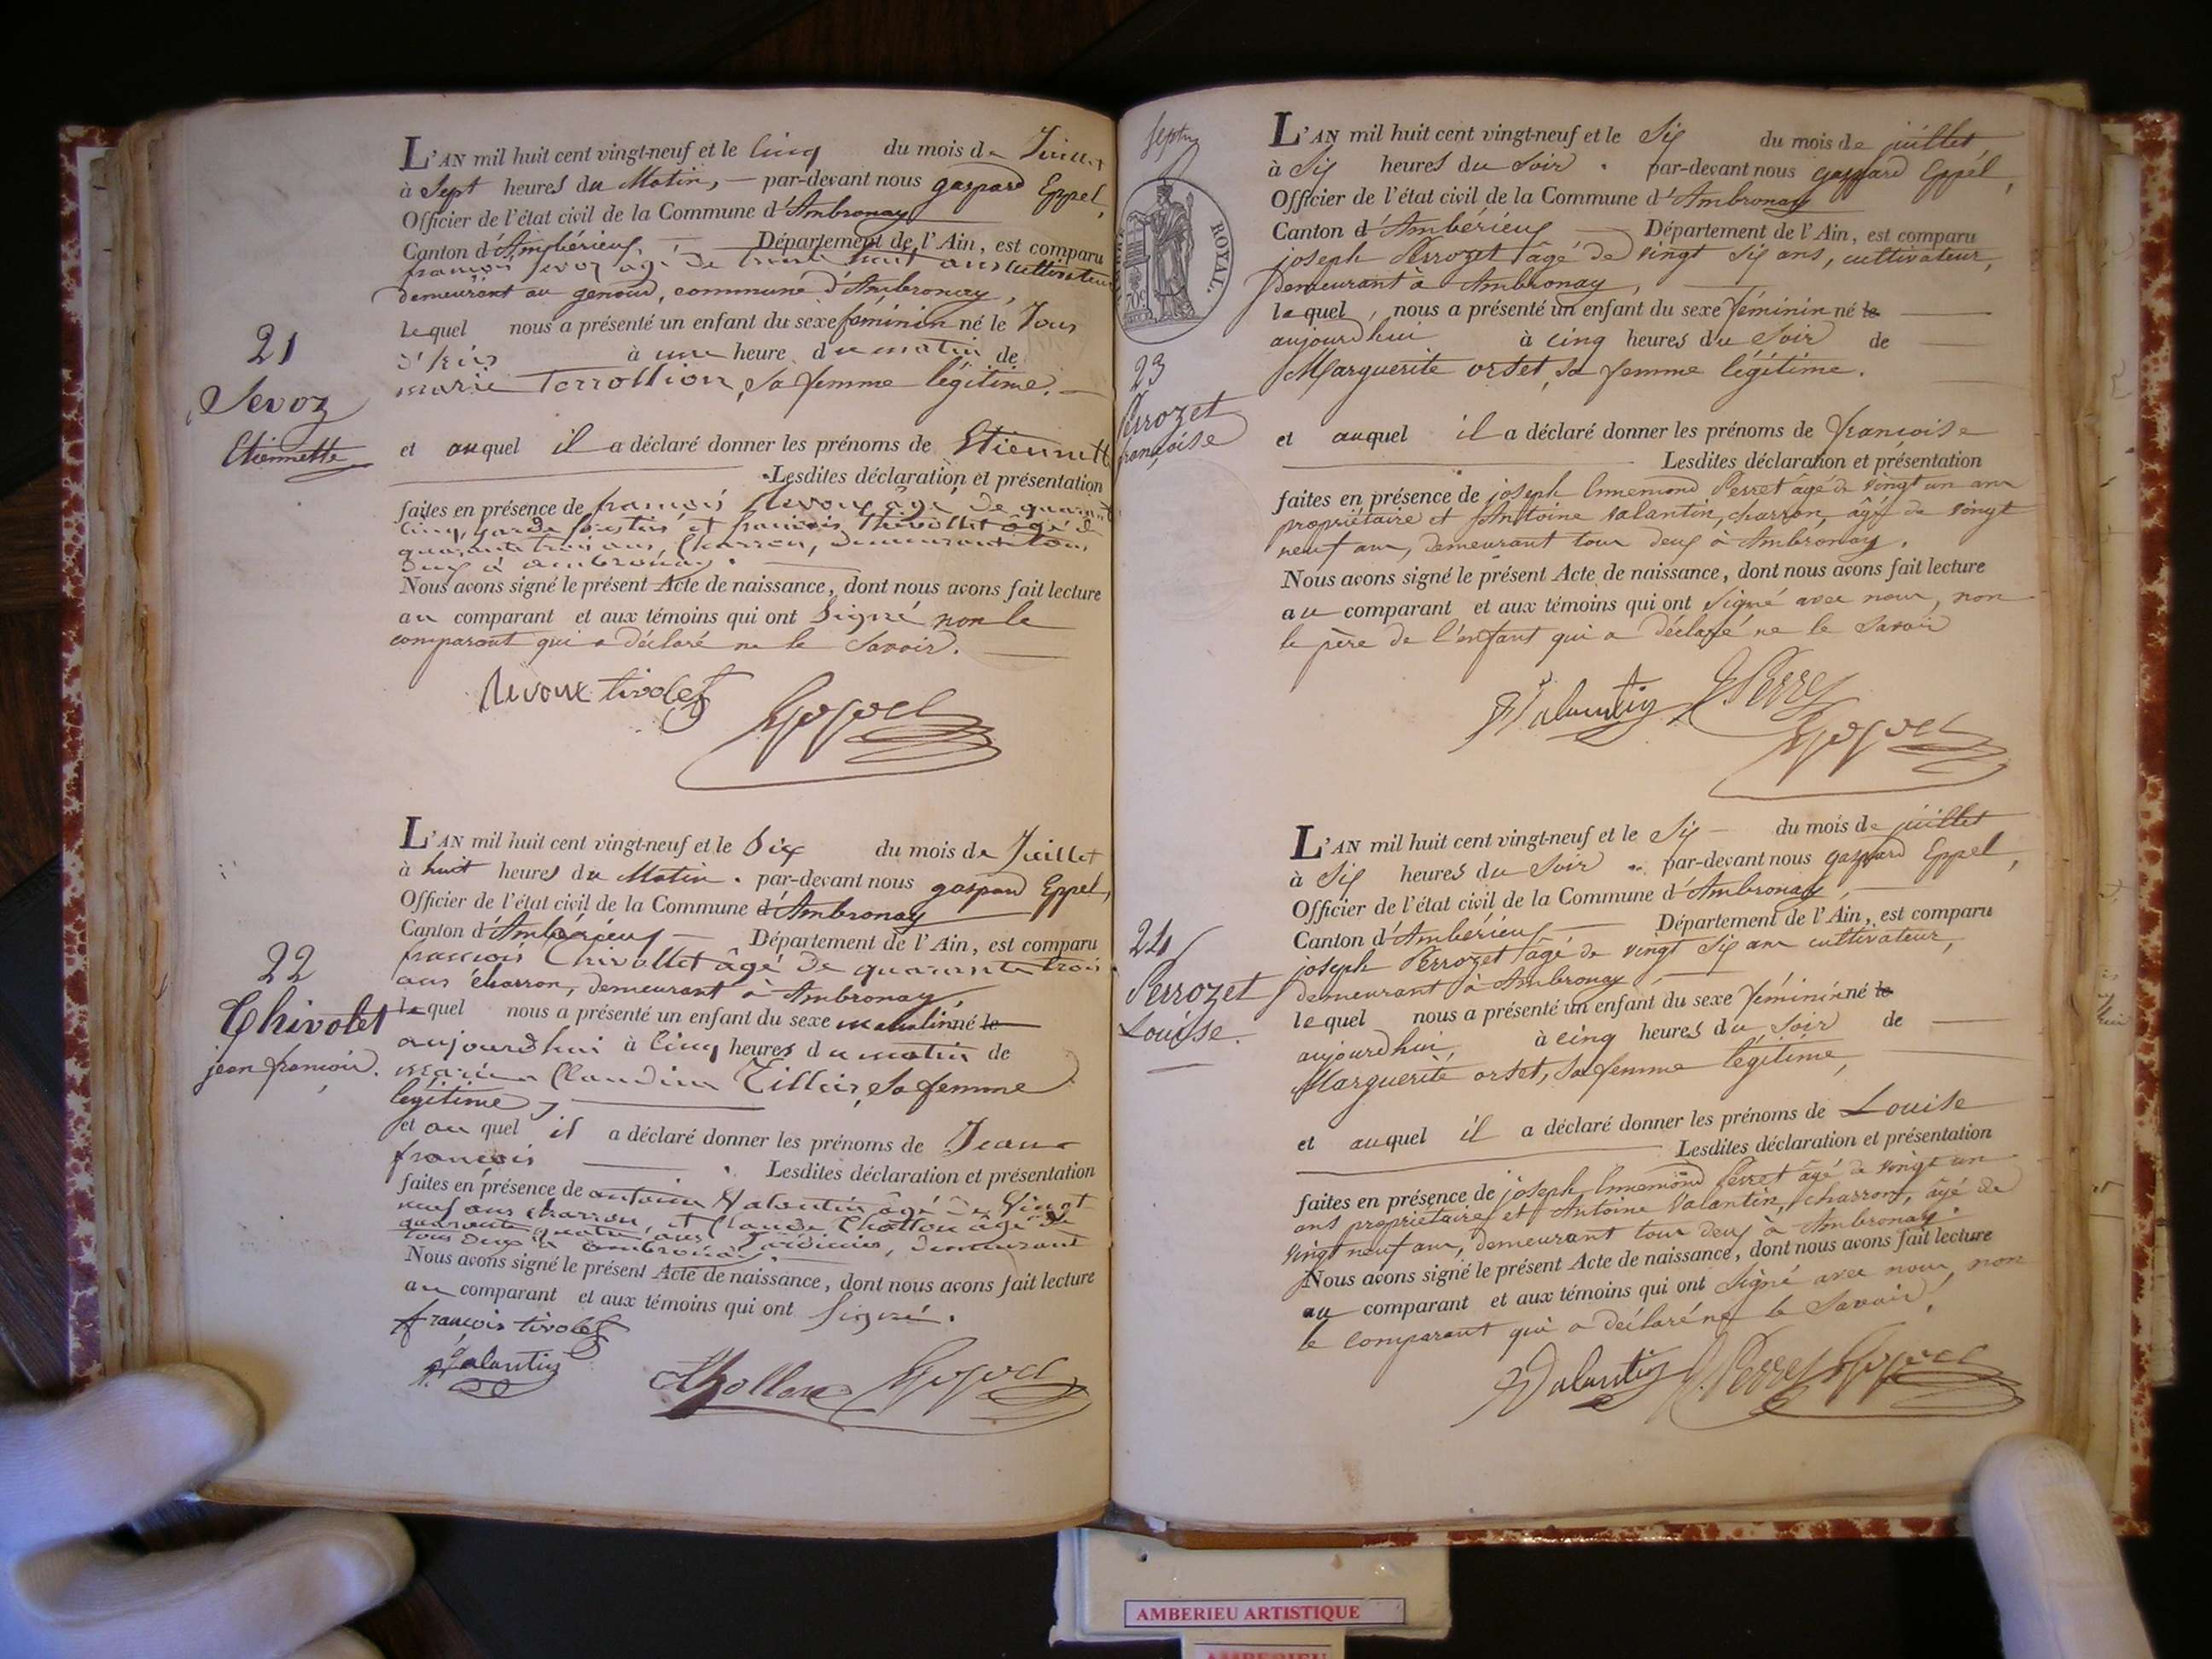 21
Sevoz
Etiennette
L'AN mil huit cent vingt-neuf et le Cinq du mois de Juillet
à Sept heures du Matin, — par-devant nous gaspard Eppel,
Officier de l'état civil de la Commune d'Ambronay
Canton d'Ambérieux — Département de l'Ain, est comparu
françois Sevoz âgé de trente huit ans cultivateur
demeurant au genoud, commune d'Ambronay,
lequel nous a présenté un enfant du sexe féminin né le Jour
d'hier à une heure du matin de
marie Terrollion, sa femme légitime. —
et auquel il a déclaré donner les prénoms de Etiennette
Lesdites déclaration et présentation
faites en présence de françois Revoux âgé de quarante
cinq, garde forestier et françois Thivollet âgé de
quarante trois ans, Charron, demeurant tous
deux à ambronay.
Nous avons signé le présent Acte de naissance, dont nous avons fait lecture
au comparant et aux témoins qui ont Signé non le
comparant qui a déclaré ne le Savoir.
Revoux tivolet Eppel
22
Thivolet
jean françois.
L'AN mil huit cent vingt-neuf et le Six du mois de Juillet
à huit heures du Matin. par-devant nous gaspard Eppel,
Officier de l'état civil de la Commune d'Ambronay
Canton d'Ambérieux — Département de l'Ain, est comparu
françois Thivollet âgé de quarante trois
ans charron, demeurant à Ambronay,
lequel nous a présenté un enfant du sexe masculin né le
aujourdhui à Cinq heures du matin de
Claudine sa femme
légitime,
et au quel il a déclaré donner les prénoms de Jean
françois Lesdites déclaration et présentation
faites en présence de antoine Valentin âgé de Vingt
neuf ans charron, et Claude Chollon âgé de
quarante quatre ans demeurant
tous deux à ambronay.
Nous avons signé le présent Acte de naissance, dont nous avons fait lecture
au comparant et aux témoins qui ont Signé.
françois tivolet
Valentin Chollon Eppel
Septm
ROYAL.
70c
23
Perrozet
françoise
L'AN mil huit cent vingt-neuf et le Six du mois de juillet
à Six heures du Soir. par-devant nous gaspard Eppel,
Officier de l'état civil de la Commune d'Ambronay
Canton d'Ambérieux — Département de l'Ain, est comparu
joseph Perrozet âgé de vingt Six ans, cultivateur,
Demeurant à Ambronay,
lequel, nous a présenté un enfant du sexe féminin né le
aujourdhui à cinq heures du Soir de
Marguerite orset, sa femme légitime.
et auquel il a déclaré donner les prénoms de françoise
Lesdites déclaration et présentation
faites en présence de joseph Ennemond Perret âgé de vingt un ans
propriétaire et Antoine Valantin, charron, âgé de vingt
neuf ans, demeurant tous deux à Ambronay.
Nous avons signé le présent Acte de naissance, dont nous avons fait lecture
au comparant et aux témoins qui ont Signé avec nous, non
le père de l'enfant qui a déclaré ne le Savoir
Valentin Perret
Eppel
24
Perrozet
Louise.
L'AN mil huit cent vingt-neuf et le Six — du mois de juillet
à Six heures du Soir par-devant nous gaspard Eppel,
Officier de l'état civil de la Commune d'Ambronay, —
Canton d'Ambérieux — Département de l'Ain, est comparu
joseph Perrozet âgé de vingt Six ans cultivateur,
demeurant à Ambronay
lequel nous a présenté un enfant du sexe féminin né le
aujourdhui, à cinq heures du Soir de
Marguerite orset, sa femme légitime,
et auquel il a déclaré donner les prénoms de Louise
Lesdites déclaration et présentation
faites en présence de joseph Ennemond Perret âgé de vingt un
ans propriétaire et Antoine Valantin, charron, âgé de
vingt neuf ans, demeurant tous deux à Ambronay.
Nous avons signé le présent Acte de naissance, dont nous avons fait lecture
au comparant et aux témoins qui ont Signé avec nous, non
le comparant qui a déclaré ne le Savoir.
Valentin Perret Eppel
AMBERIEU ARTISTIQUE
AMBERIEU